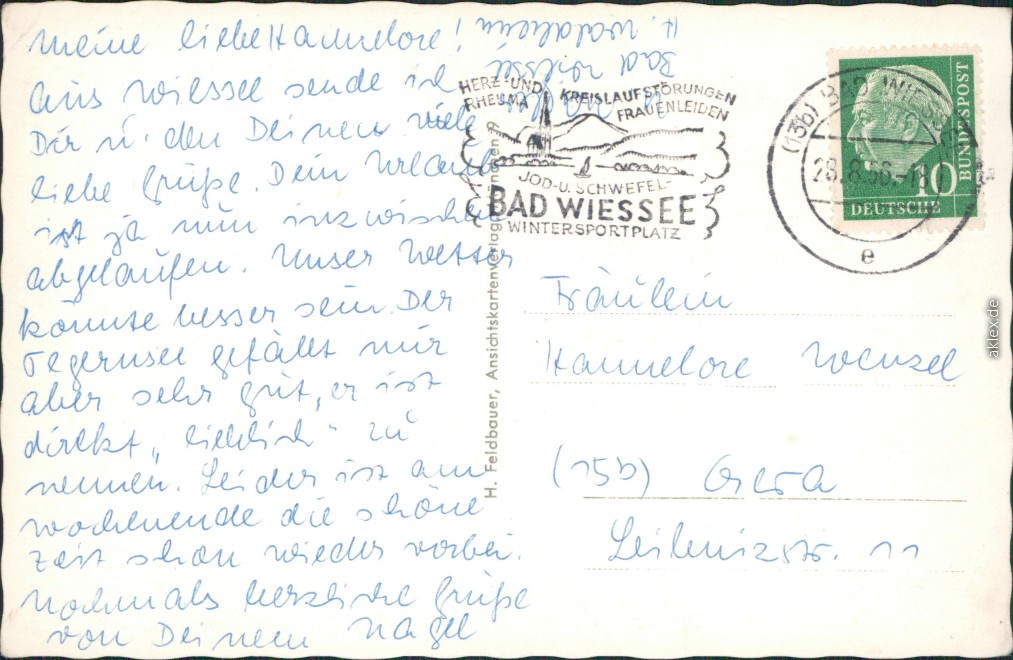 Meine liebe Hannelore!
Aus Wiessee sende ich
Dir u. den Deinen viele
liebe Grüße. Dein Urlaub
ist ja nun inzwischen
abgelaufen. Unser Wetter
könnte besser sein. Der
Tegernsee gefällt mir
aber sehr gut, er ist
direkt „lieblich“ zu
nennen. Leider ist am
Wochenende die schöne
Zeit schon wieder vorbei.
Nochmals herzliche Grüße
von Deinem Nagel
H. Waldheim
Bad Wiessee
HERZ- UND
RHEUMA
KREISLAUFSTÖRUNGEN
FRAUENLEIDEN
JOD- U. SCHWEFEL-
BAD WIESSEE
WINTERSPORTPLATZ
(13b) BAD WIESSEE
28.8.56.-18
e
10
DEUTSCHE
BUNDESPOST
H. Feldbauer, Ansichtskartenverlag, München 9
Fräulein
Hannelore Wenzel
(15b) Gera
Leibnizstr. 11
aklex.de